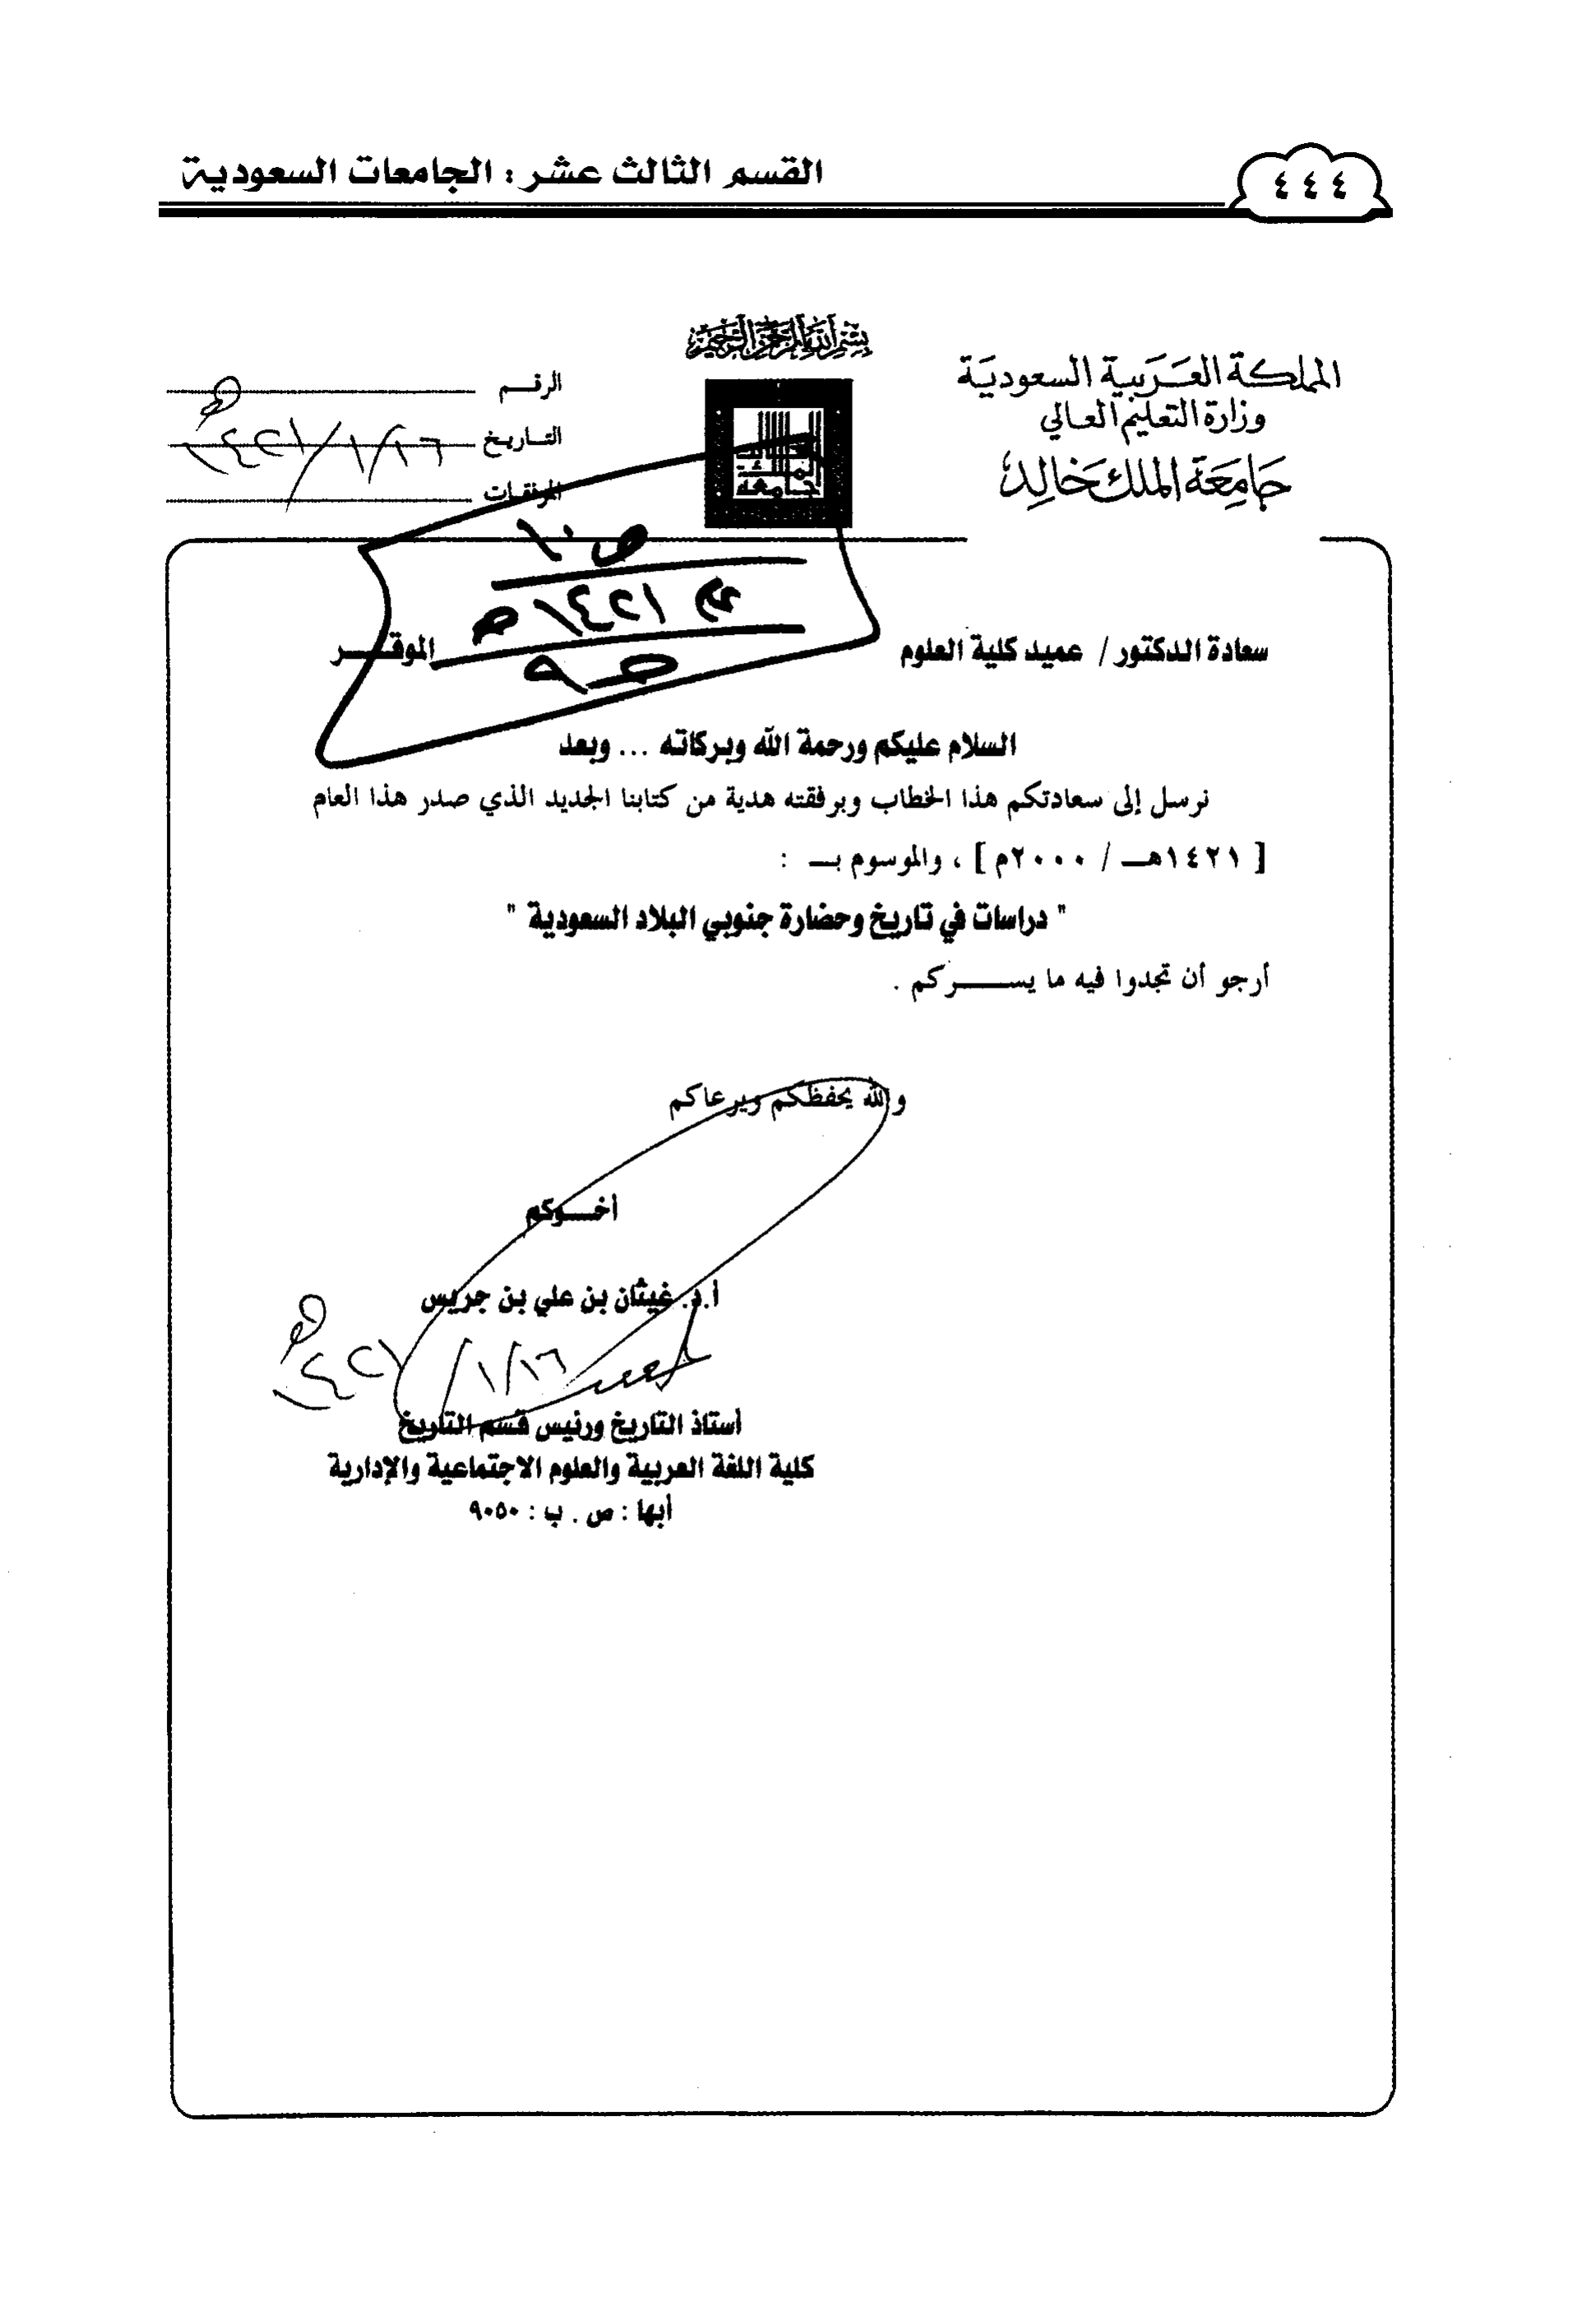 ٤٤٤
القسم الثالث عشر : الجامعات السعودية
بسم الله الرحمن الرحيم
المملكة العربية السعودية
وزارة التعليم العالي
جامعة الملك خالد
الرقم
التاريخ ١٤٢١/١/١٦هـ
المرفقات
ص ١٠
عام ١٤٢١هـ
سعادة الدكتور / عميد كلية العلوم الموقر
السلام عليكم ورحمة الله وبركاته ... وبعد
نرسل إلى سعادتكم هذا الخطاب وبرفقته هدية من كتابنا الجديد الذي صدر هذا العام
[ ١٤٢١هـ / ٢٠٠٠م ] ، والموسوم بـ :
" دراسات في تاريخ وحضارة جنوبي البلاد السعودية "
أرجو أن تجدوا فيه ما يسركم .
والله يحفظكم ويرعاكم
أخوكم
أ.د. غيثان بن علي بن جريس
١٤٢١/١/١٦هـ
أستاذ التاريخ ورئيس قسم التاريخ
كلية اللغة العربية والعلوم الاجتماعية والإدارية
أبها : ص . ب : ٩٠٥٠